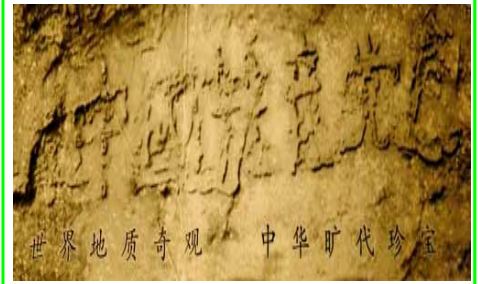 中國共産党亡
世界地质奇观 中华旷代珍宝